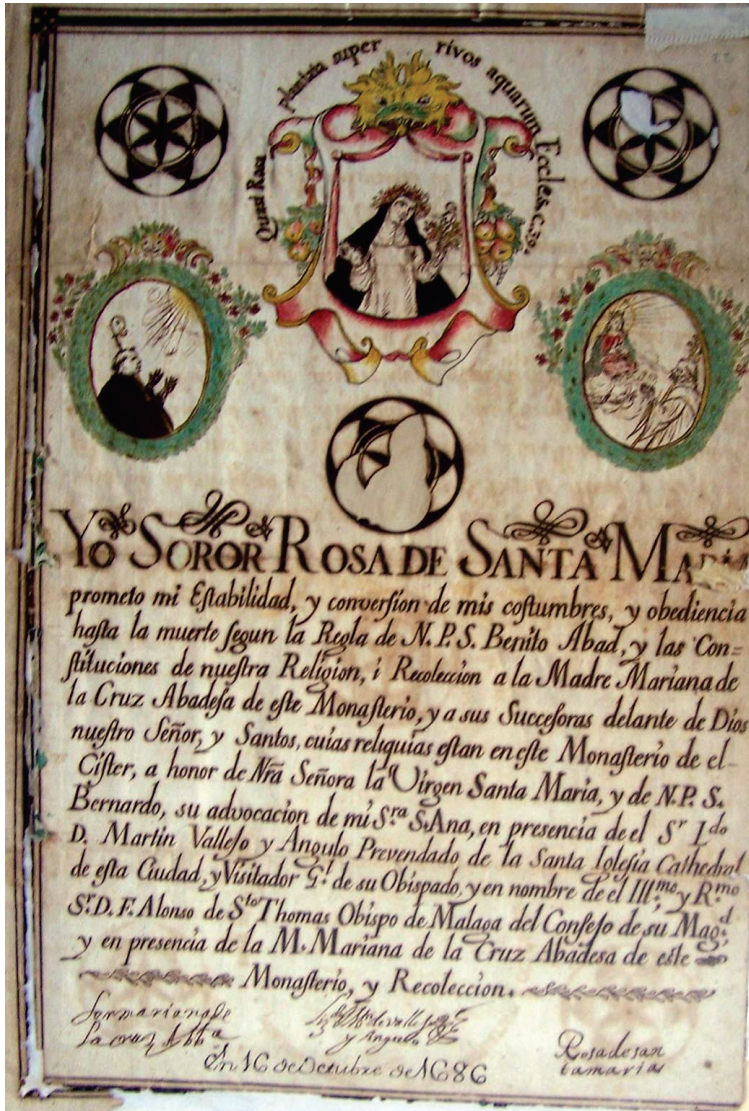 Quasi Rosa plantata super rivos aquarum Eccles. C. 39.
YO SOROR ROSA DE SANTA MARIA
prometo mi Estabilidad, y conversion de mis costumbres, y obediencia
hasta la muerte segun la Regla de N.P.S. Benito Abad, y las Con=
stituciones de nuestra Religion, i Recoleccion a la Madre Mariana de
la Cruz Abadesa de este Monasterio, y a sus Successoras delante de Dios
nuestro Señor, y Santos, cuias reliquias estan en este Monasterio de el
Cister, a honor de Nrã Señora la Virgen Santa Maria, y de N.P.S.
Bernardo, su advocacion de mi Sra S. Ana, en presencia de el Sr Ldo
D. Martin Vallejo y Angulo Prevendado de la Santa Iglesia Cathedral
de esta Ciudad, y Visitador Gl de su Obispado, y en nombre de el Illmo y Rmo
Sr. D. F. Alonso de Sto Thomas Obispo de Malaga del Consejo de su Magd
y en presencia de la M. Mariana de la Cruz Abadesa de este
Monasterio, y Recoleccion.
Sor mariana de
la cruz Abba
y Angulo
Rosa de san
ta maria
En 16 de Octubre de 1686